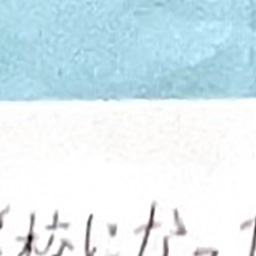 校になっ